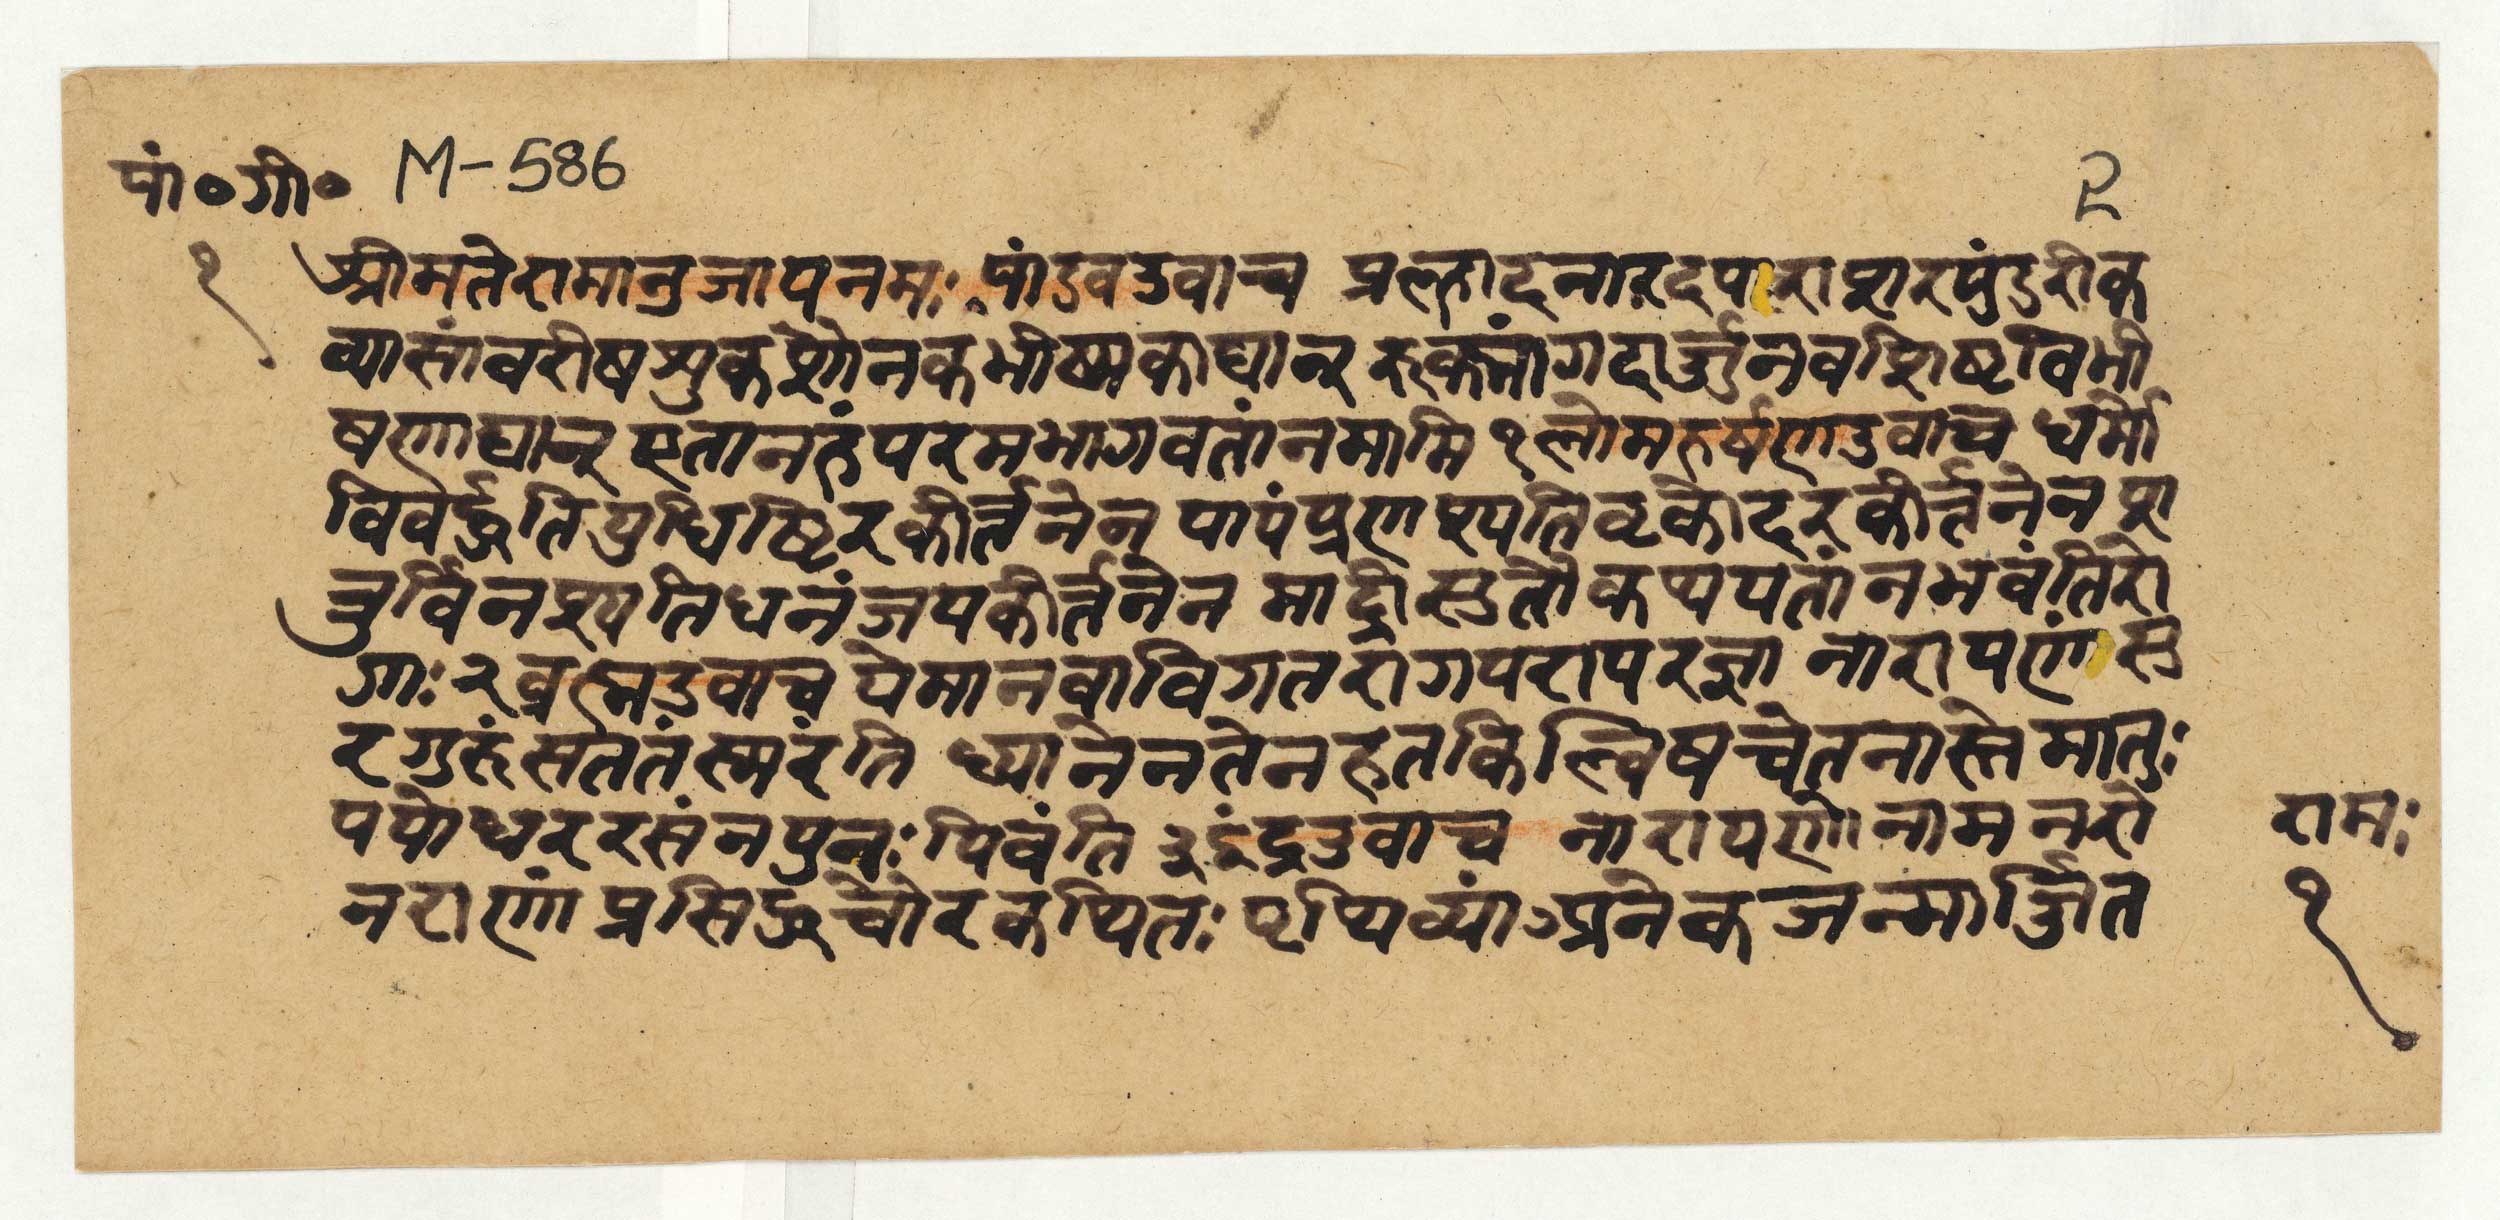 पां०गी० M-586 २
१
श्रीमतेरामानुजायनमः पांडवउवाच प्रल्हादनारदपाराशरपुंडरीक
व्यासांवरीषशुकशोनकभीष्मकाद्यान् रूक्मांगदार्ज्जुनवशिष्टविभी
षणाद्यान् एतानहंपरमभागवतांनमामि १ लोमहर्षणउवाच धर्मो
विवर्द्धतियुधिष्टिरकीर्त्तनेन पापंप्रणश्यतिवृकोदरकीर्त्तनेन श
त्रुर्विनश्यतिधनंजयकीर्त्तनेन माद्रीसुतौकथयतांनभवंतिरो
गाः २ व्रह्मउवाच येमानवाविगतरागपरापरज्ञा नारायणंसु
रगुरूंसततंस्मरंति ध्यानेनतेनहतकिल्विषचेतनास्ते मातुः
पयोधररसंनपुनः पिवंति ३ इंद्रउवाच नारायणोनामनरो
नराणां प्रसिद्धचोरकथितः पृथिव्यां अनेकजन्मार्ज्जित
रामः
१